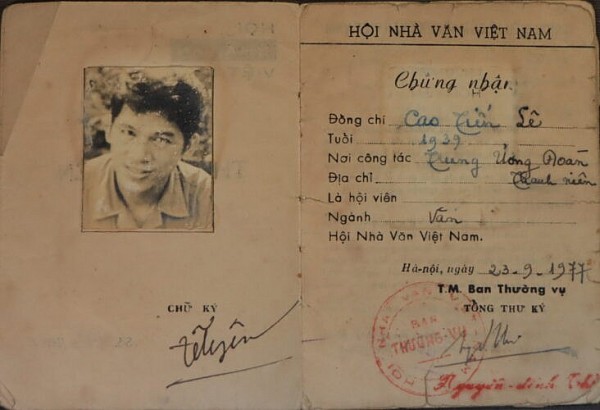 CHỮ KÝ
HỘI NHÀ VĂN VIỆT NAM
Chứng nhận
Đồng chí Cao Tiến Lê
Tuổi 1939
Nơi công tác Trung Ương Đoàn
Địa chỉ Thanh niên
Là hội viên
Ngành Văn
Hội Nhà Văn Việt Nam.
Hà-nội, ngày 23-9-1977
T.M. Ban Thường vụ
TỔNG THƯ KÝ
BAN
THƯỜNG-VỤ
Nguyễn-đình Thi